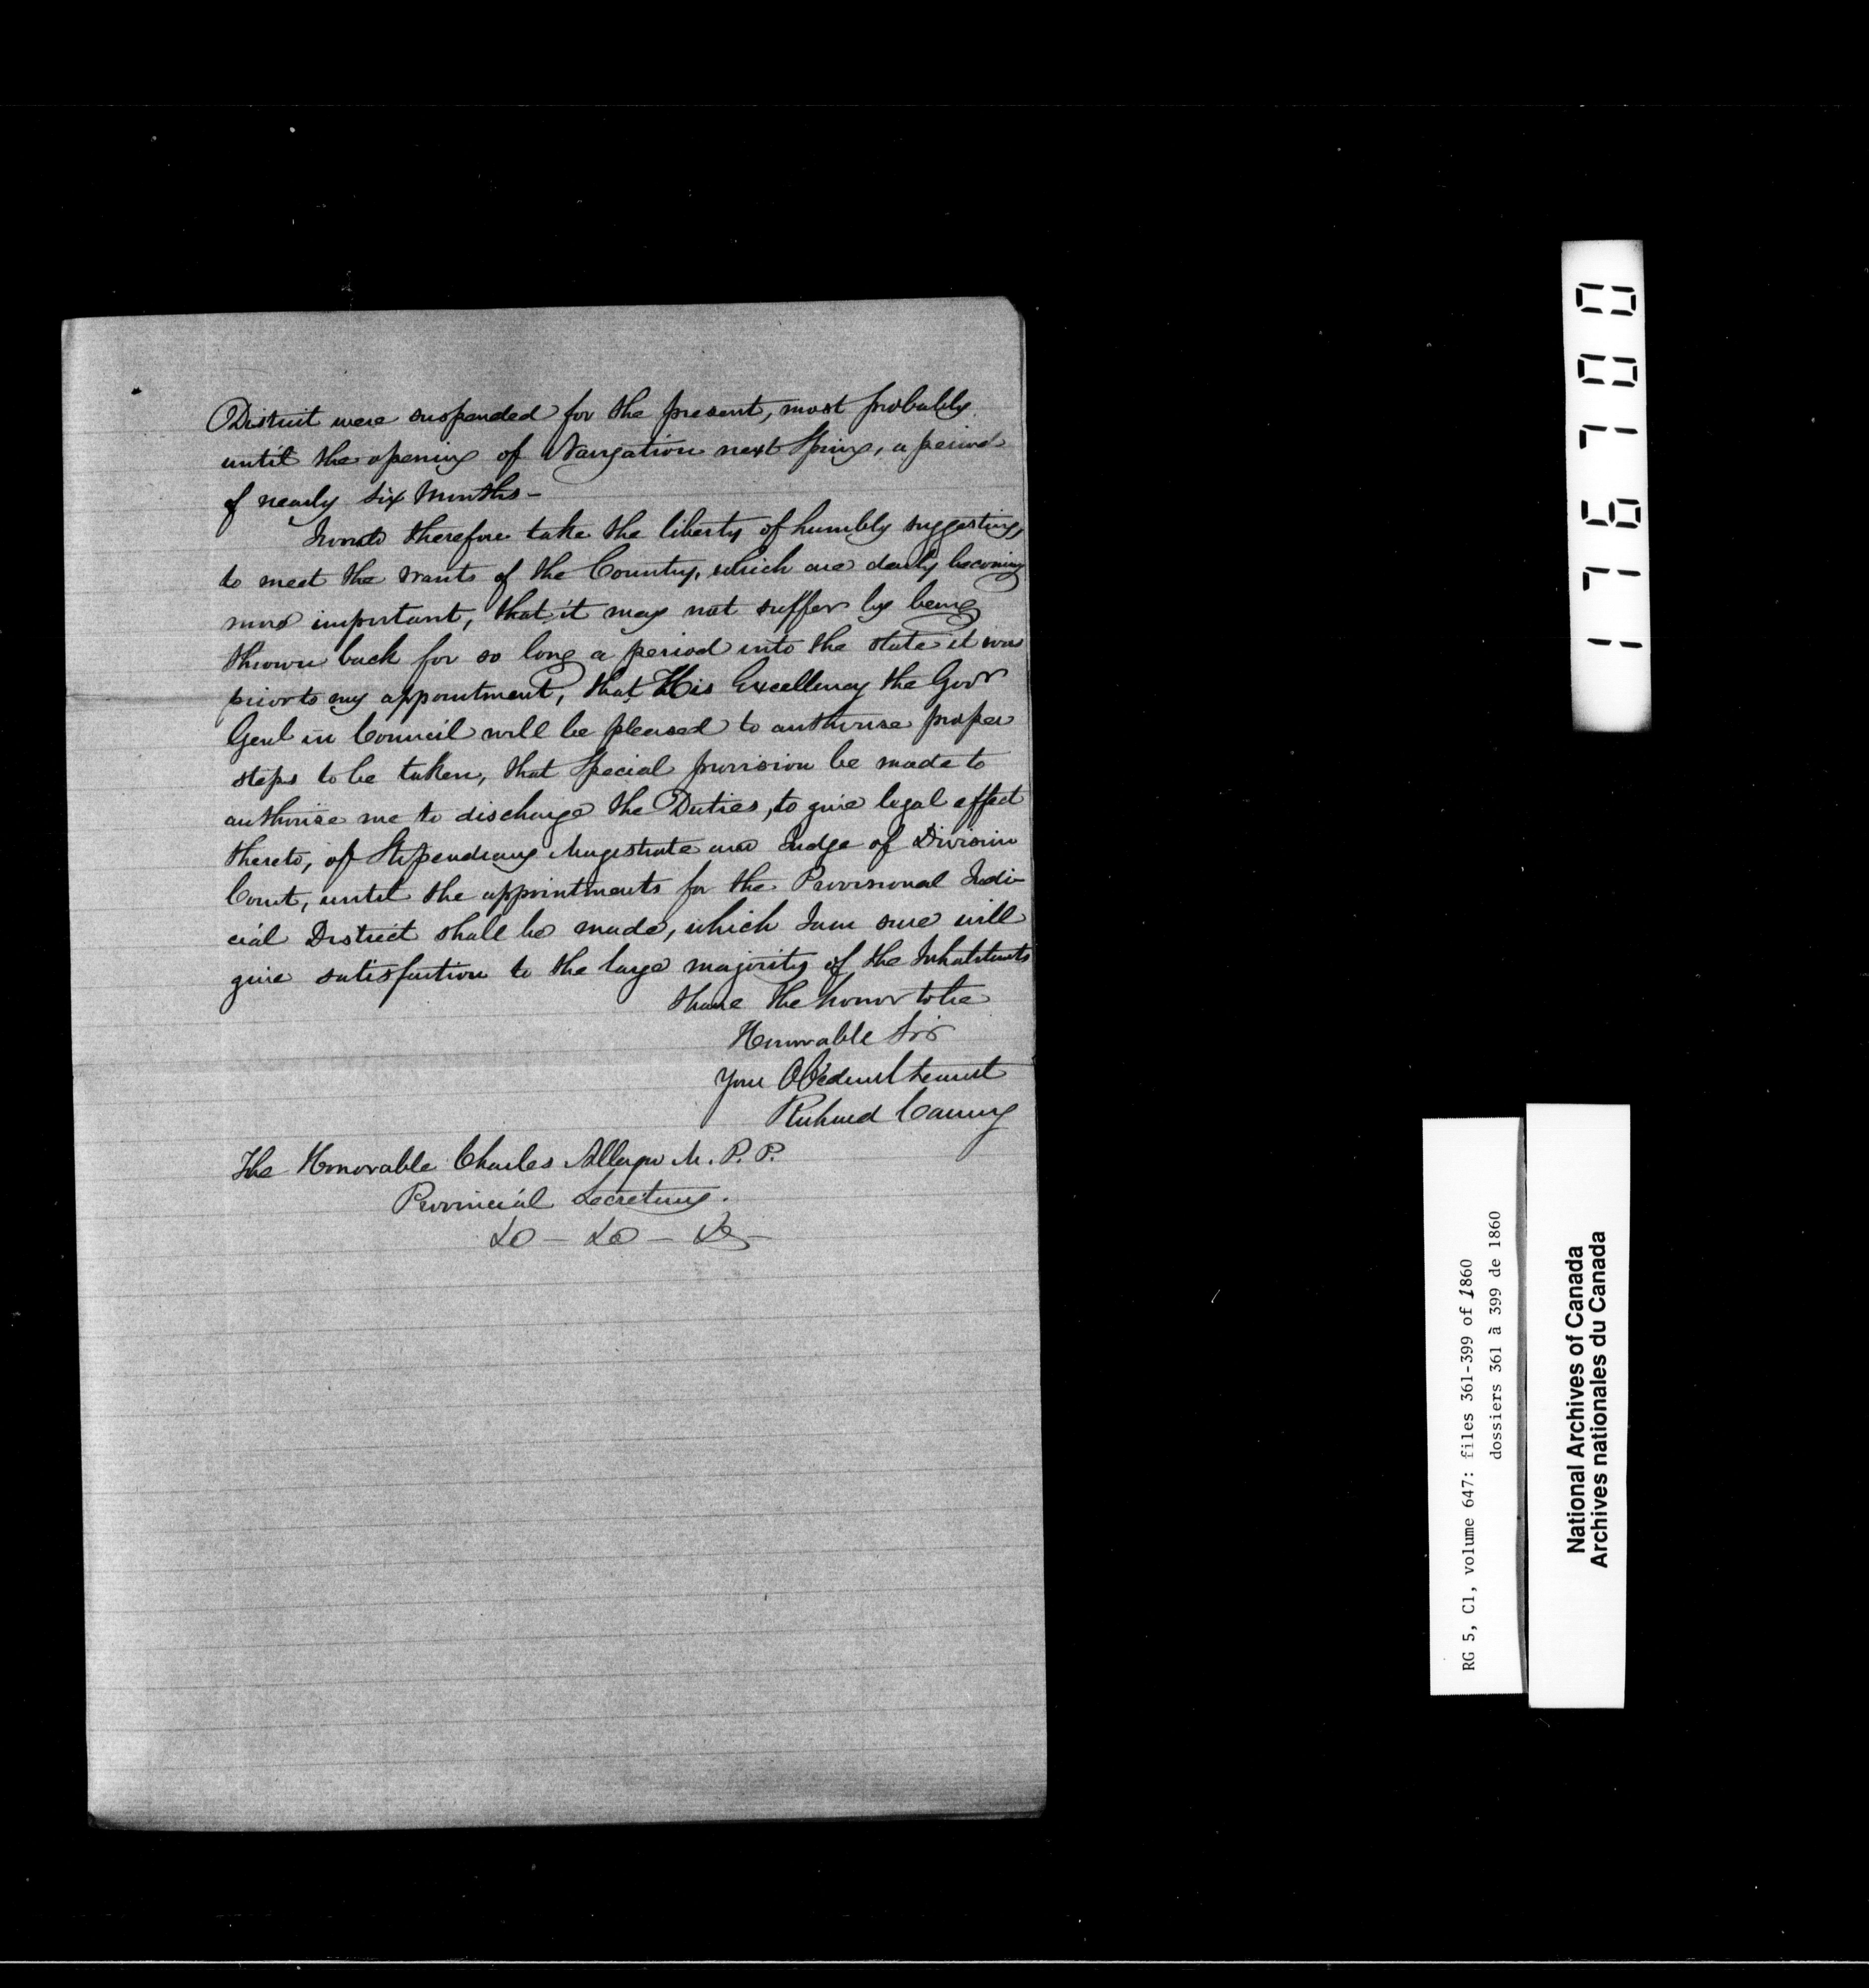 District were suspended for the present, most probably
until the opening of Navigation next Spring, a period
of nearly six Months -
I would therefore take the liberty of humbly suggesting,
to meet the wants of the Country, which are daily becoming
more important, that it may not suffer by being
thrown back for so long a period into the state it was
prior to my appointment, that His Excellency the Govr
Genl in Council will be pleased to authorise proper
steps to be taken, that Special provision be made to
authorise me to discharge the Duties, to give legal effect
thereto, of Stipendiary Magistrate and Judge of Division
Court, until the appointments for the Provisional Judi-
cial District shall be made, which I am sure will
give satisfaction to the large majority of the Inhabitants
I have the honor to be
Honorable Sir
Your Obedient Servant
Richard Carney
The Honorable Charles Alleyn M.P.P.
Provincial Secretary.
&c - &c - &c -
176700
RG 5, C1, volume 647: files 361-399 of 1860
dossiers 361 à 399 de 1860
National Archives of Canada
Archives nationales du Canada